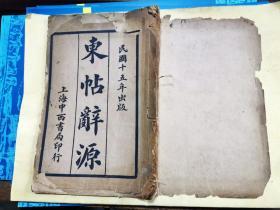 民國十五年出版
東帖辭源
上海中西書局印行